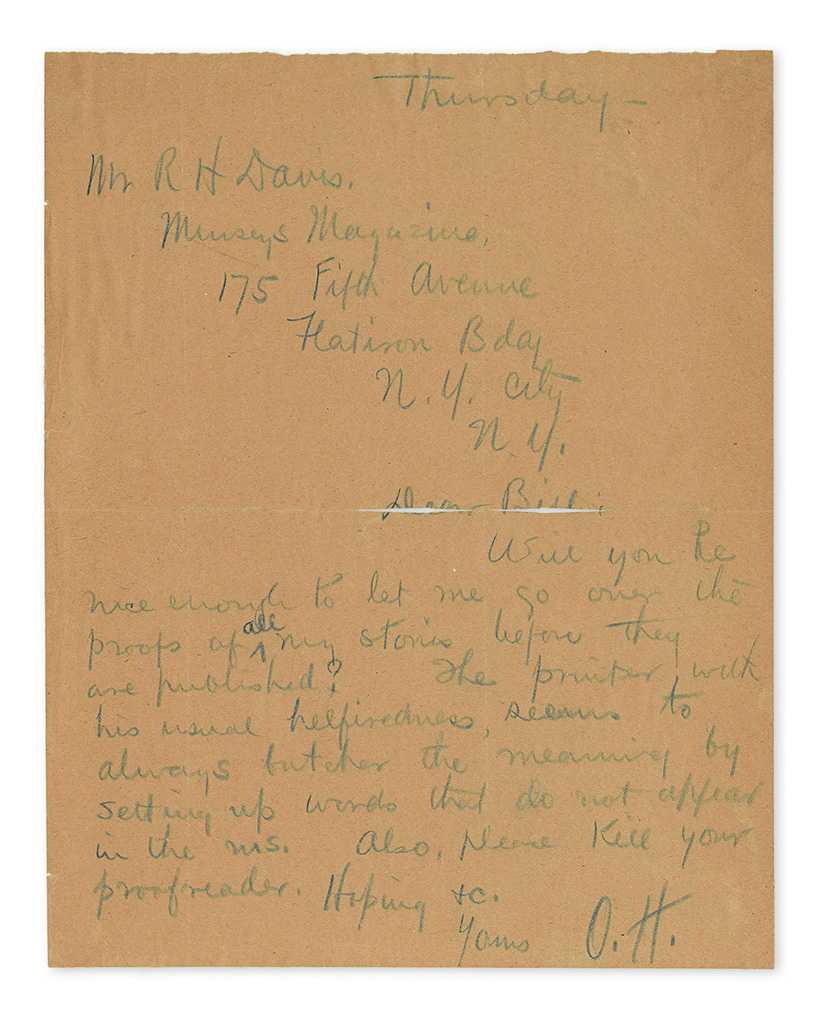 Thursday —
Mr R H Davis.
Munseys Magazine,
175 Fifth Avenue
Flatiron Bdg
N. Y. City
N. Y.
Dear Bill:
Will you be
nice enough to let me go over the
proofs of all my stories before they
are published? The printer, with
his usual hellfiredness, seems to
always butcher the meaning by
setting up words that do not appear
in the ms. Also, please kill your
proofreader. Hoping &c.
Yours O. H.